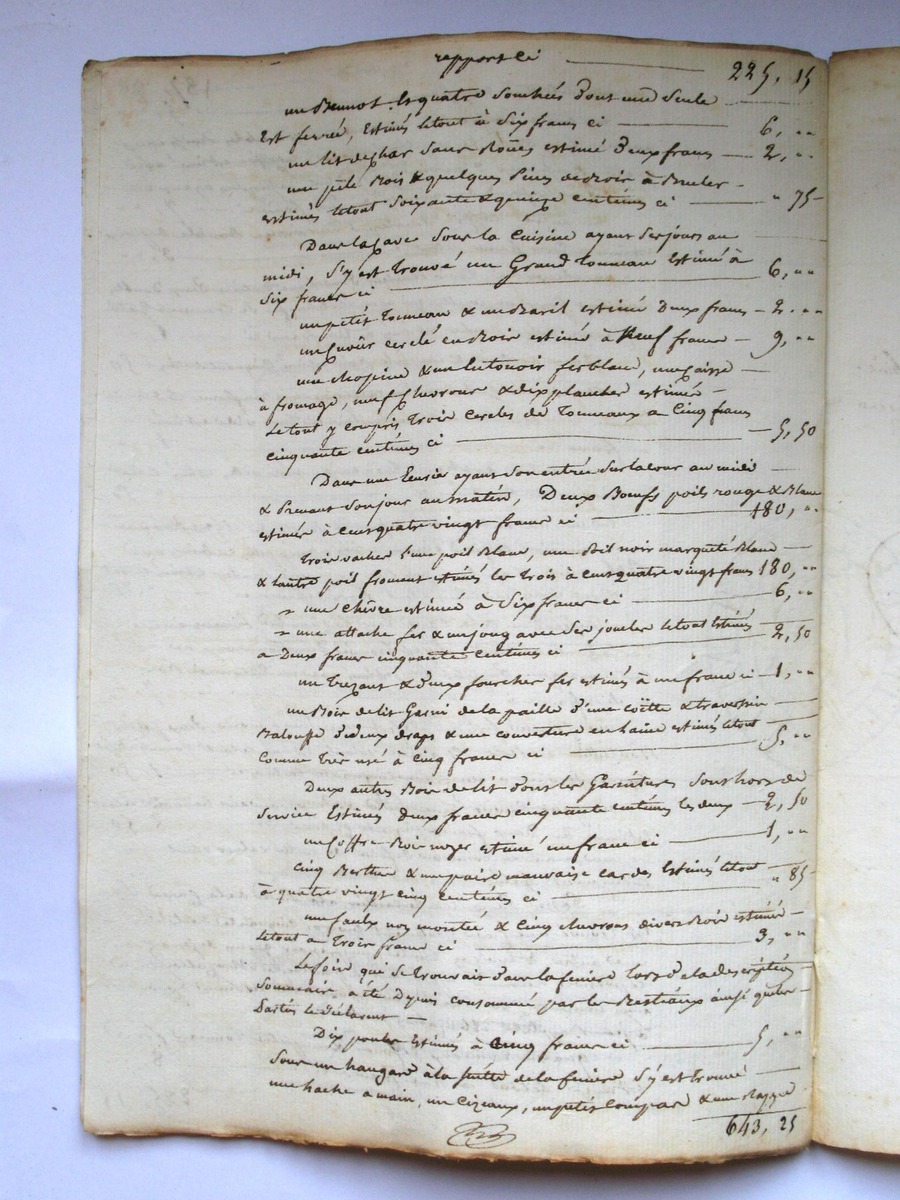 rapport ci 225, 15
un Bennot, les quatre douhées dont une seule
est ferrée, estimés letout à six francs ci 6, "
un lit de char sans Roües estimé deux francs 2, "
un ptit Bois & quelques pieces de Bois à Bruler
estimés letout soixante & quinze centimes ci " 75
Dans la Cave sous la Cuisine ayant ses jours au
midi, s'y est trouvé un Grand Tonneau estimé à
six francs ci 6, "
un petit Tonneau & un Baril estimé Deux francs 2. "
un Cuvier cerclé en Bois estimé à Neuf francs 9, "
une chopine & un Entonoir ferblanc, une Caisse
à fromage, neuf chevrons & dix planches estimé
Letout y compris Trois cercles de Tonneaux a Cinq francs
cinquante centimes ci 5, 50
Dans une Ecurie ayant son entrée sur la cour au midi
& Prenant son jour au matin, Deux Boeufs poils rouge & Blanc
estimés à cent quatre vingt francs ci 180, "
Trois vaches l'une poil Blanc, une Poil noir marqueté Blanc
& l'autre poil froment estimés les Trois à cent quatre vingt francs 180, "
une chèvre estimée à six francs ci 6, "
une attache fer & un joug avec ses joucles letout estimés
a Deux francs cinquante centimes ci 2, 50
un Trezant & deux fourches fer estimés à un franc ci 1, "
un Bois de lit Garni de la paille d'une coëtte & traversin
Balouffe de deux draps & une couverture en laine estimés letout
comme très usé à cinq francs ci 5, "
Deux autres Bois de lit dont les Garnitures sont hors de
service Estimés deux francs cinquante centimes les deux 2, 50
un Coffre Bois noyer estimé un franc ci 1, "
cinq Berthes & une paire mauvaise cardes Estimés letout
à quatre vingt cinq centimes ci " 85
une faulx non montée & Cinq chevrons divers Bois estimés
letout a Trois francs ci 3, "
Le foin qui se trouvait dans la feniere lors de la description
sommaire a été Depuis consommé par les Bestiaux ainsi que les
Parties le déclarent
Dix poules Estimés à cinq francs ci 5, "
sous un hangard à la suitte de la feniere s'y est trouvé
une hache a main, un Cizeaux, un petit Compas & une Rappe
643, 25